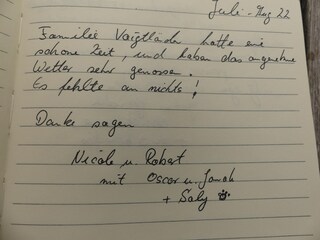 Juli - Aug 22
Familie Voigtländer hatte eine
schöne Zeit, und haben das angenehme
Wetter sehr genossen.
Es fehlte an nichts!
Danke sagen
Nicole u. Robert
mit Oscar u. Jonah
+ Saly